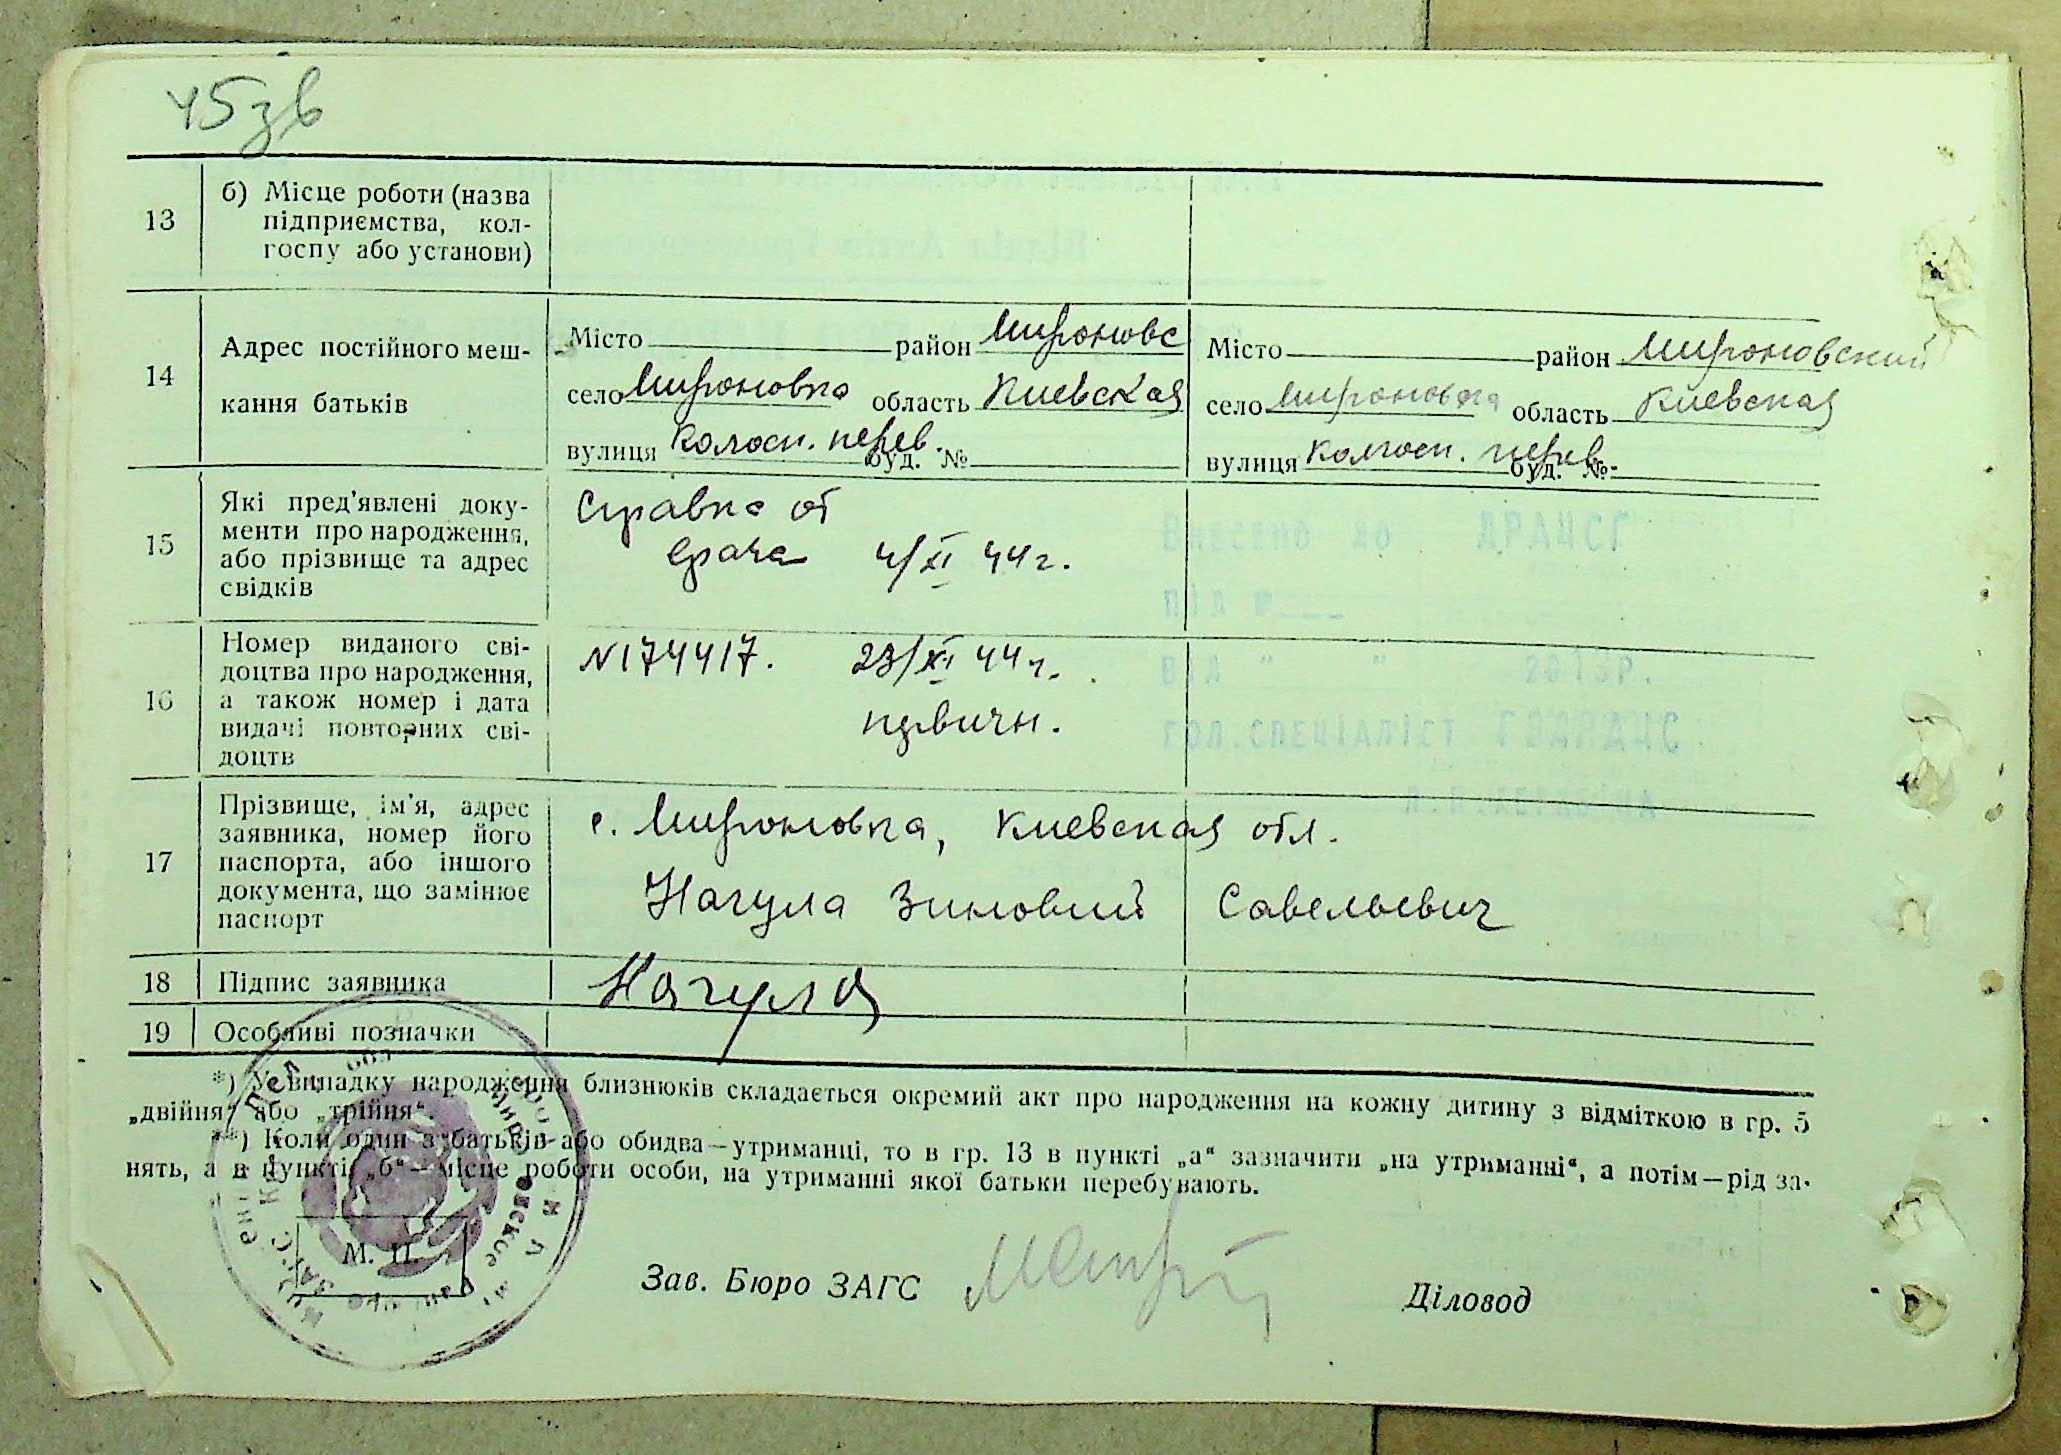 45зв
13
б) Місце роботи (назва
підприємства, кол-
госпу або установи)
14
Адрес постійного меш-
кання батьків
Місто район Мироновс
село Мироновка область Киевская
вулиця Колосп. перев. буд. №
Місто район Мироновский
село Мироновка область Киевская
вулиця Колгосп. перев. буд. №
15
Які пред'явлені доку-
менти про народження,
або прізвище та адрес
свідків
Справка от
врача 4/XI 44 г.
Внесено до ДРАЦСГ
під №
від " " 2013р.
гол.спеціаліст ГВДРАЦС
16
Номер виданого сві-
доцтва про народження,
а також номер і дата
видачі повторних сві-
доцтв
N174417. 23/XI 44 г.
первичн.
17
Прізвище, ім'я, адрес
заявника, номер його
паспорта, або іншого
документа, що замінює
паспорт
с. Мироновка, Киевская обл.
Нагула Зиновий Савельевич
18
Підпис заявника
Нагула
19
Особливі позначки
*) У випадку народження близнюків складається окремий акт про народження на кожну дитину з відміткою в гр. 5
„двійня“ або „трійня“.
**) Коли один з батьків або обидва—утриманці, то в гр. 13 в пункті „а“ зазначити „на утриманні“, а потім—рід за-
нять, а в пункті „б“—місце роботи особи, на утриманні якої батьки перебувають.
М. П.
Зав. Бюро ЗАГС
Діловод